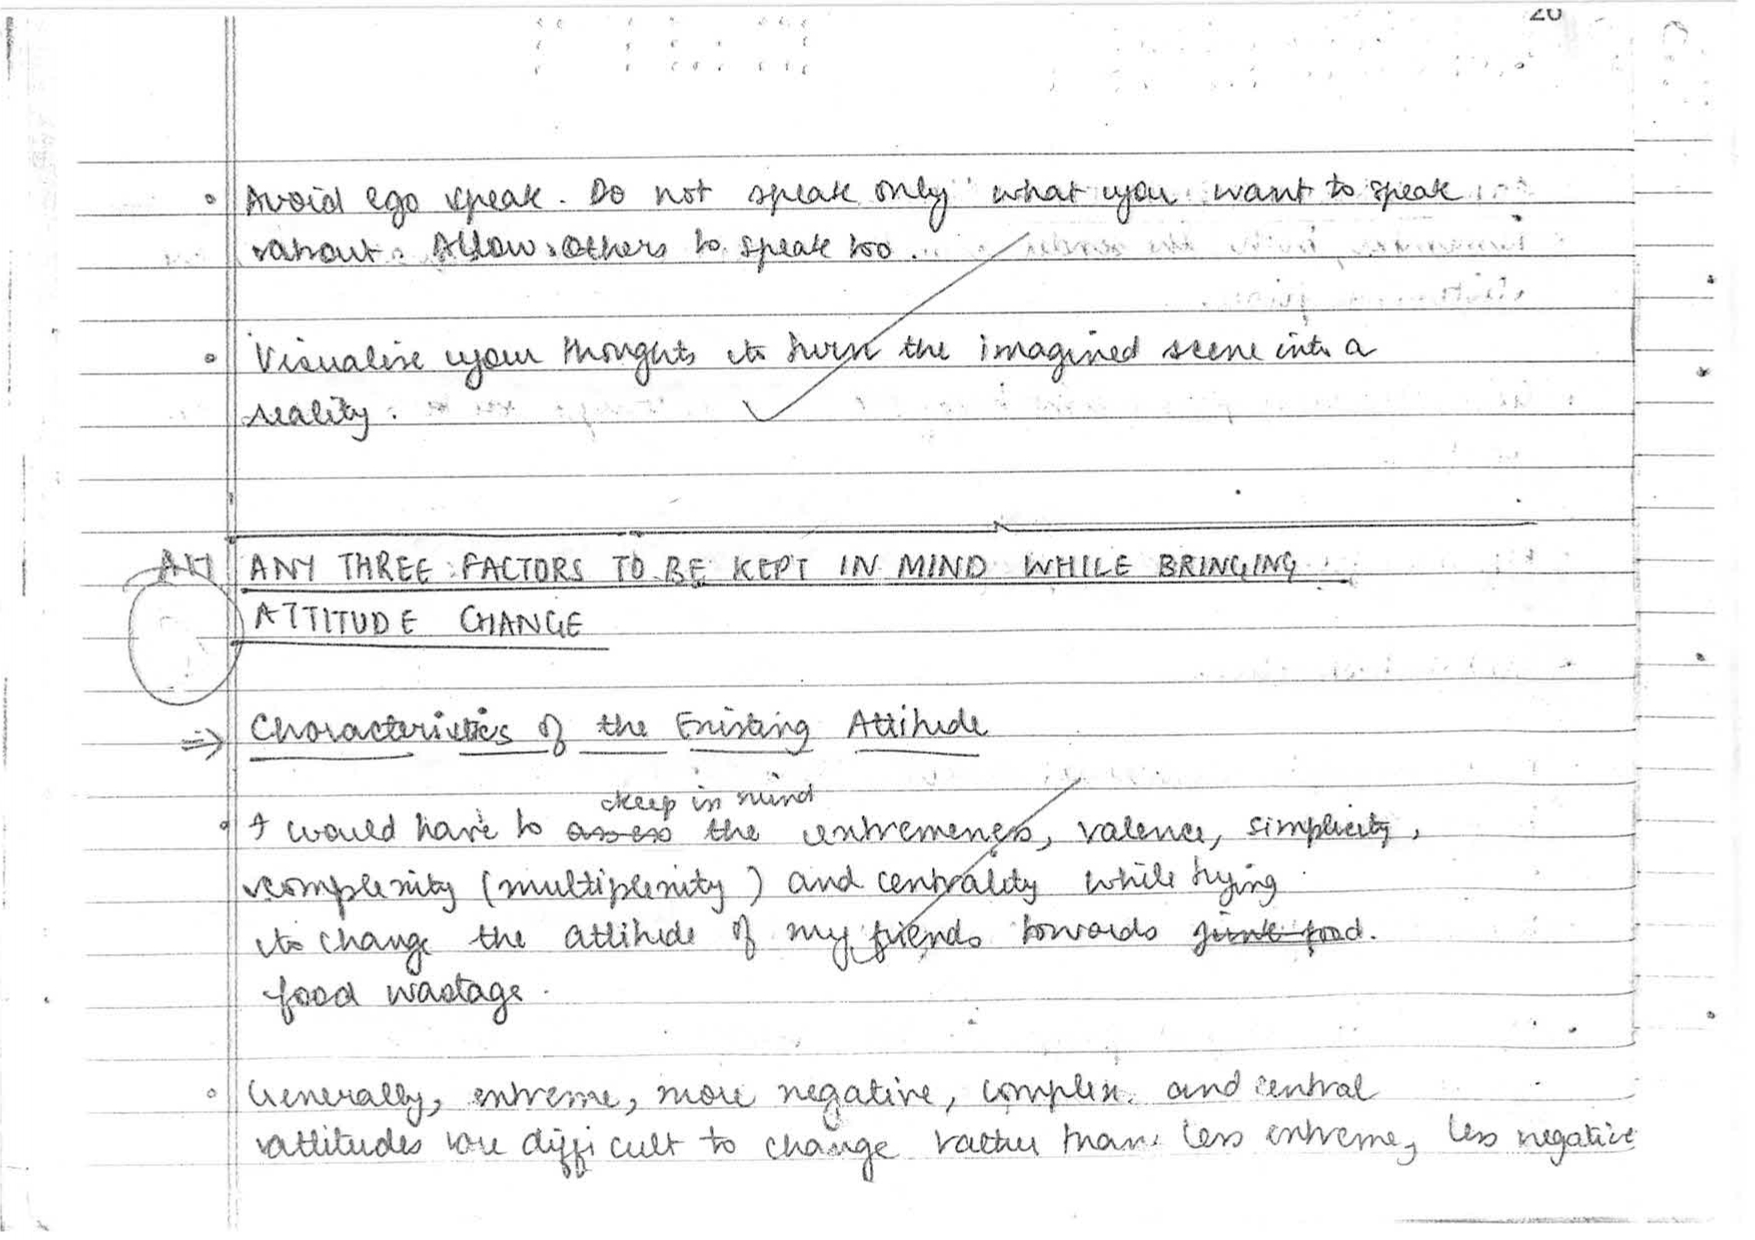 20
Avoid ego speak. Do not speak only what you want to speak
about. Allow others to speak too.
Visualise your thoughts to turn the imagined scene into a
reality.
A17 ANY THREE FACTORS TO BE KEPT IN MIND WHILE BRINGING
ATTITUDE CHANGE
⇒ Characteristics of the Existing Attitude
keep in mind
I would have to assess the extremeness, valence, simplicity,
complexity (multiplexity) and centrality while trying
to change the attitude of my friends towards junk food.
food wastage.
Generally, extreme, more negative, complex and central
attitudes are difficult to change rather than less extreme, less negative